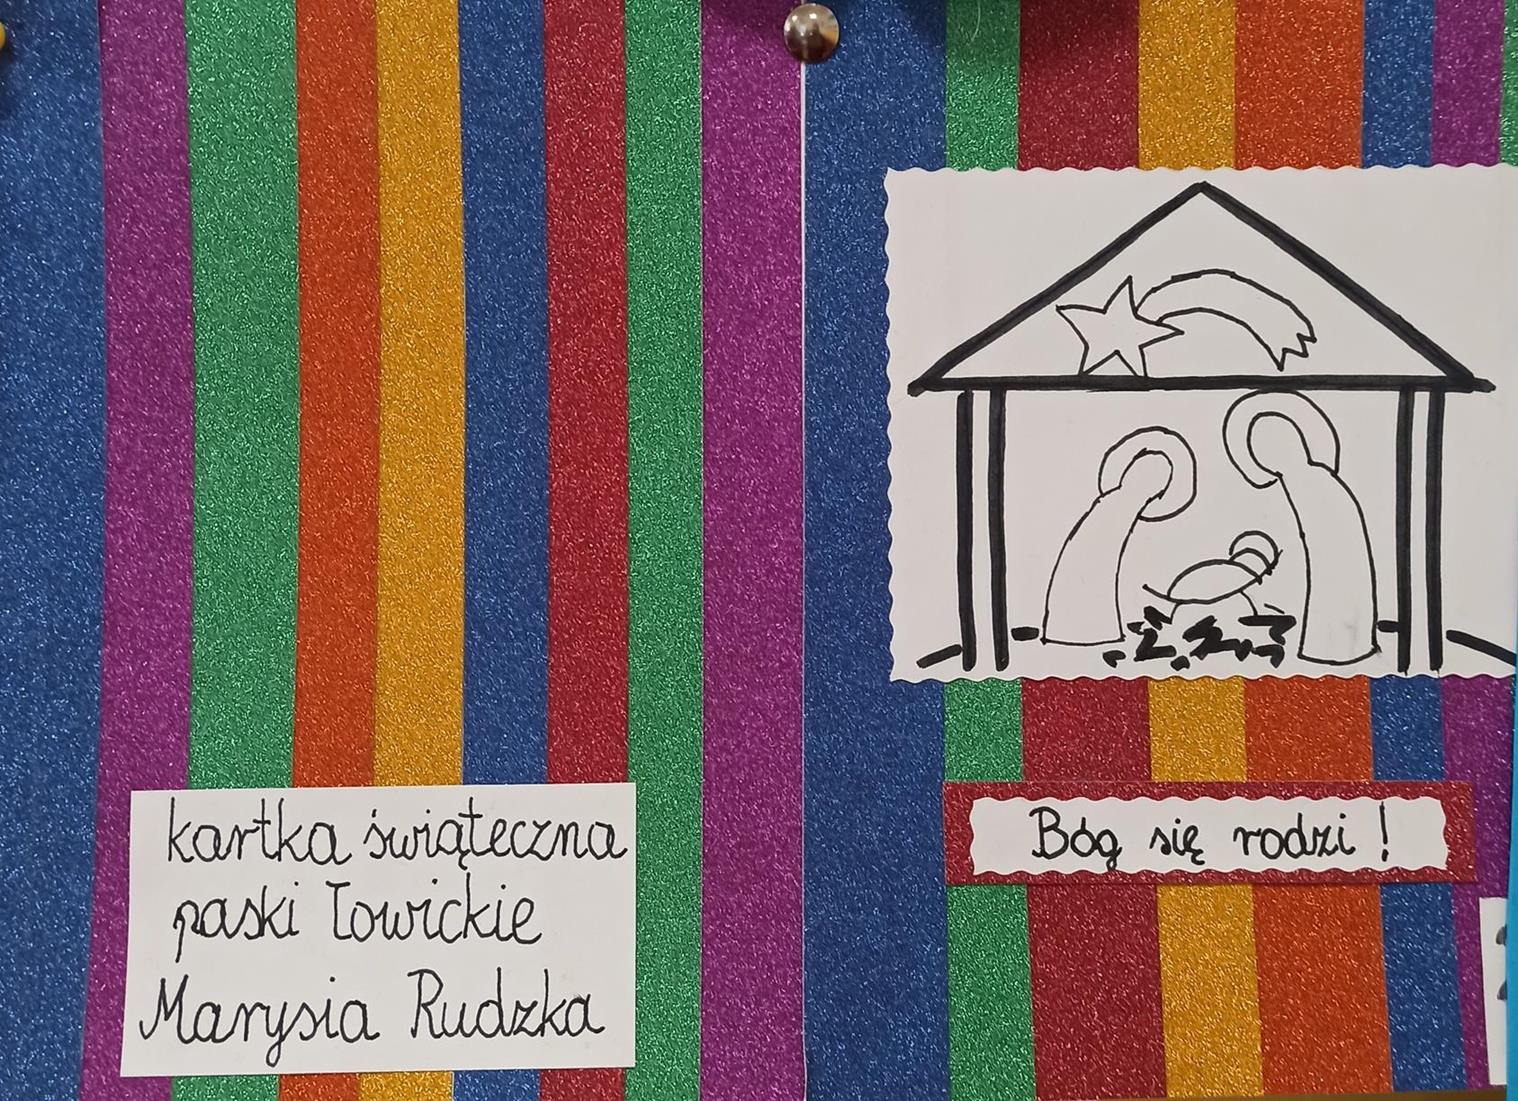 kartka świąteczna
paski łowickie
Marysia Rudzka
Bóg się rodzi!